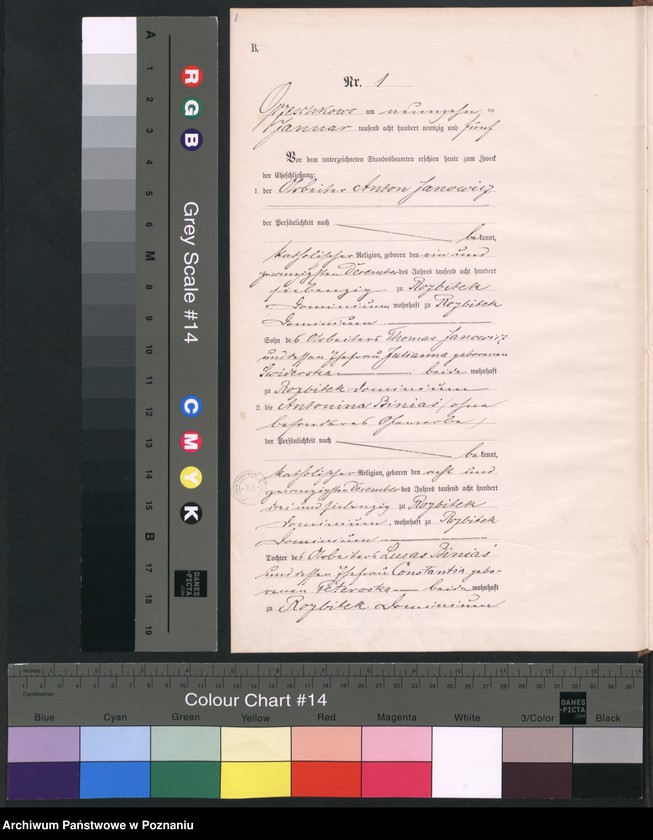 B.
Nr. 1
Orzeschkowo am neunzehn ten
Januar tausend acht hundert neunzig und fünf
Vor dem unterzeichneten Standesbeamten erschien heute zum Zweck
der Eheschließung:
1. der Arbeiter Anton Janowicz
der Persönlichkeit nach
be kannt,
katholischer Religion, geboren den ein und
zwanzigsten Dezember des Jahres tausend acht hundert
siebenzig zu Rozbitek
Dominium, wohnhaft zu Rozbitek
Dominium
Sohn des Arbeiters Thomas Janowicz
und dessen Ehefrau Julianna geborenen
Swiderska beide wohnhaft
zu Rozbitek Dominium
2. die Antonina Biniaś (ohne
besonderes Gewerbe)
der Persönlichkeit nach
be kannt,
katholischer Religion, geboren den acht und
zwanzigsten Dezember des Jahres tausend acht hundert
drei und siebenzig zu Rozbitek
Dominium, wohnhaft zu Rozbitek
Dominium
Tochter des Arbeiters Lucas Biniaś
und dessen Ehefrau Constantia gebo-
renen beide wohnhaft
zu Rozbitek Dominium
Grey Scale #14
R G B
C M Y K
A 1 2 3 4 5 6 M 8 9 10 11 12 13 14 15 B 17 18 19
DANES
-PICTA
.COM
Inches
Centimetres
Colour Chart #14
DANES
-PICTA
.COM
Blue Cyan Green Yellow Red Magenta White 3/Color Black
Archiwum Państwowe w Poznaniu